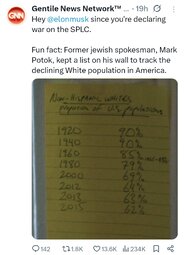 Gentile News Network™ ... · 19h
GNN
Hey @elonmusk since you're declaring
war on the SPLC.
Fun fact: Former jewish spokesman, Mark
Potok, kept a list on his wall to track the
declining White population in America.
Non-Hispanic whites
proportion of U.S. populations
1920 90%
1940 90%
1960 85%
1980 79%
2000 69%
2012 64%
2013 63%
2015 62%
142
1.8K
13.6K
234K